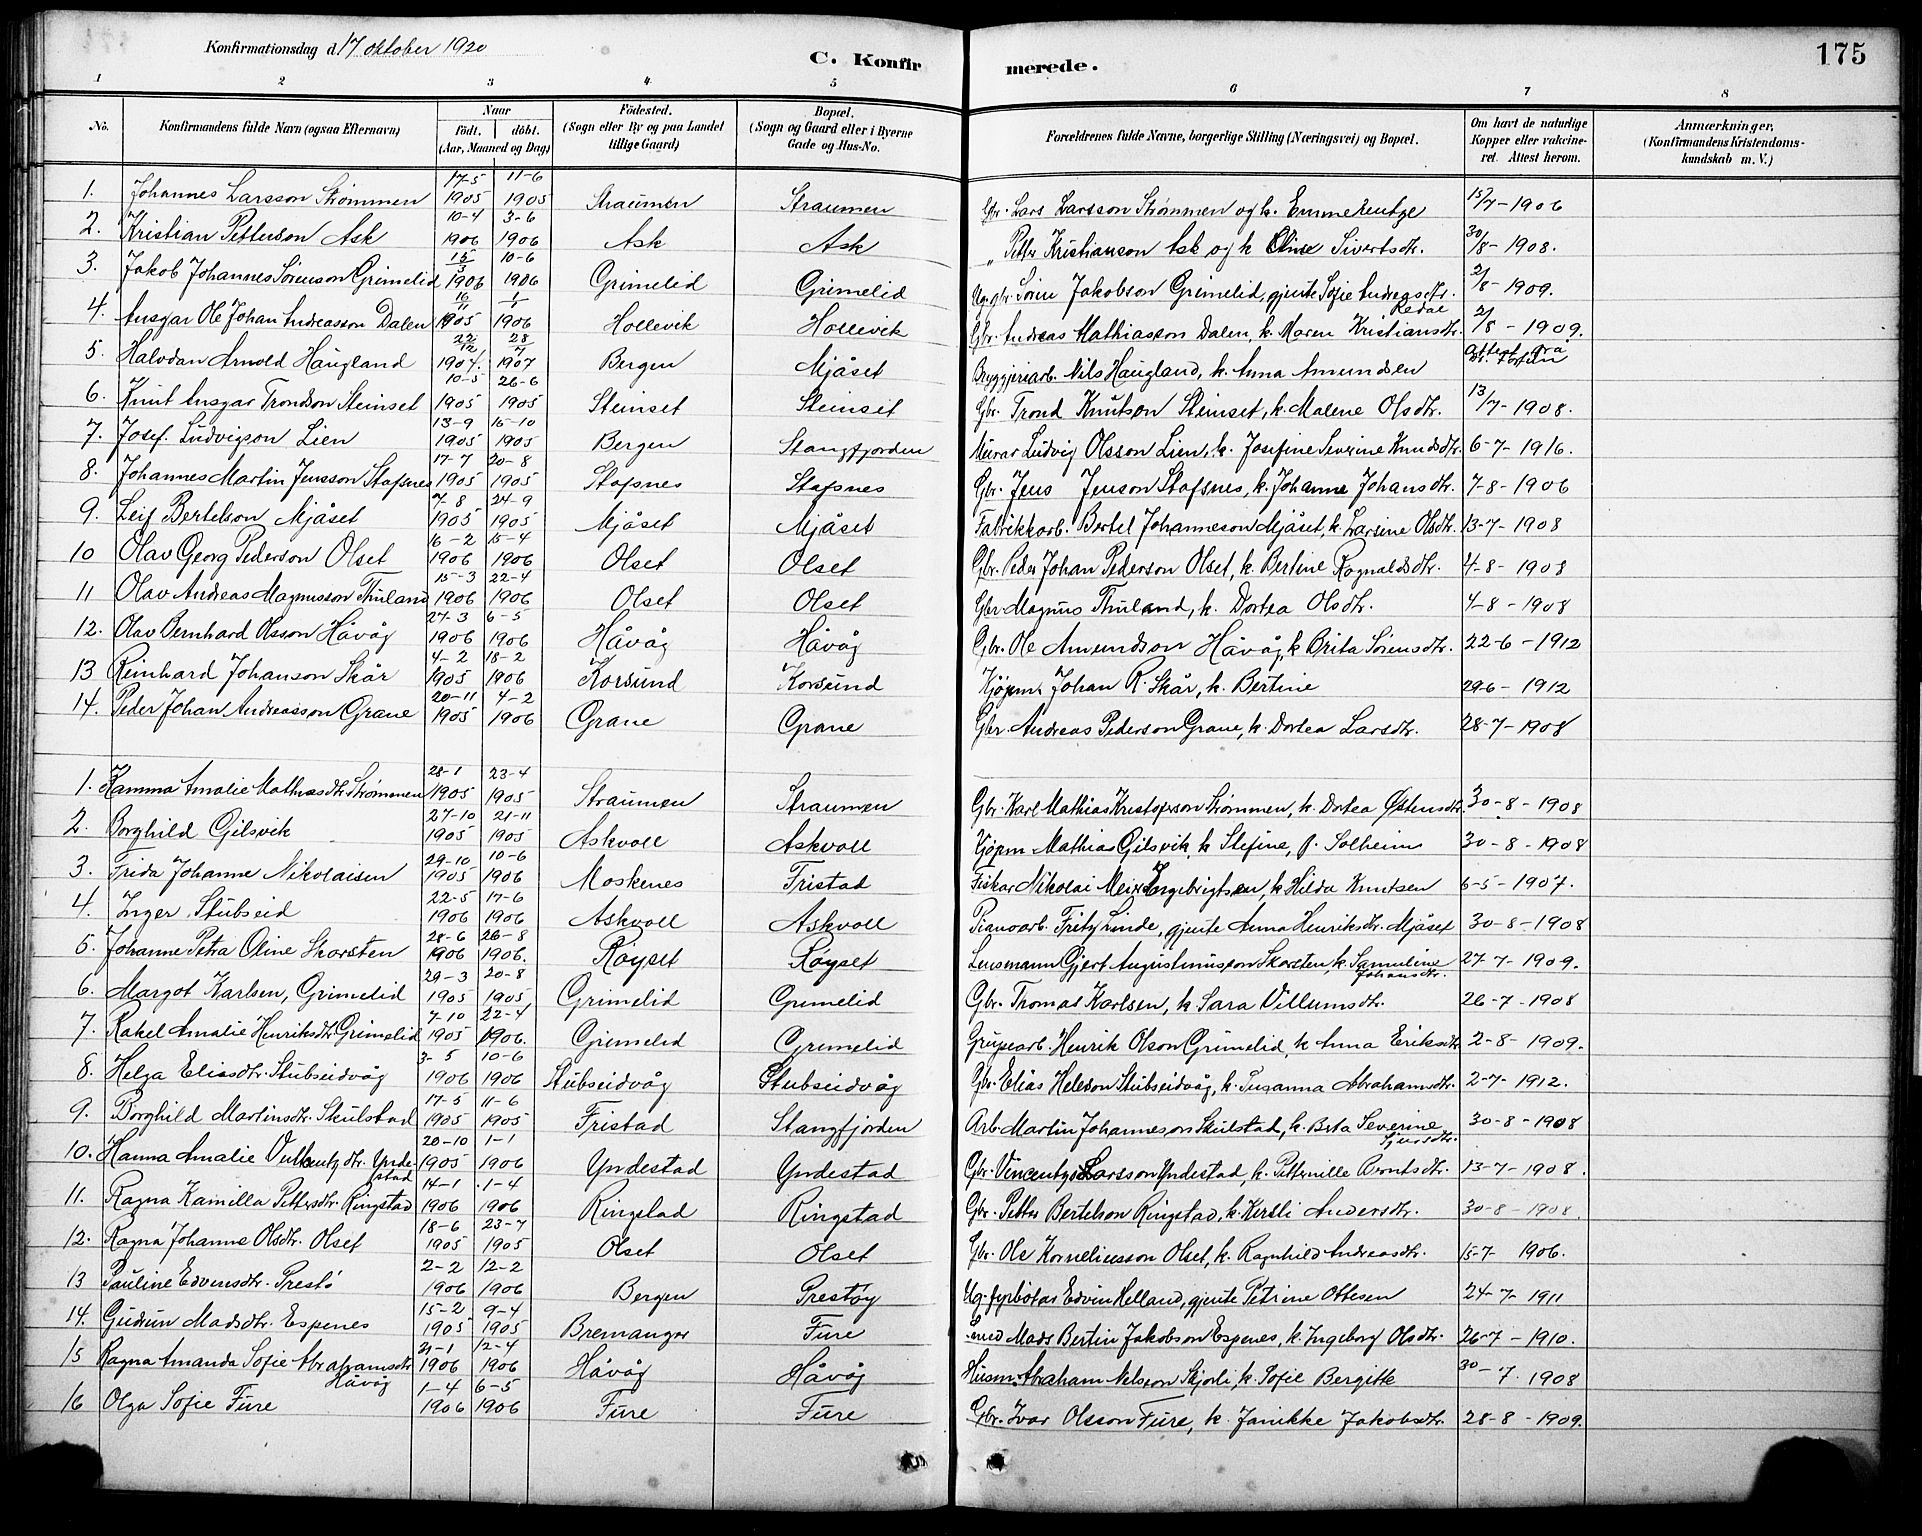 Konfirmationsdag d. 17 oktober 1920
C. Konfirmerede.
175
1 2 3 4 5 6 7 8
No.
Konfirmandens fulde Navn (ogsaa Efternavn)
Naar
født. døbt.
(Aar, Maaned og Dag)
Fødested.
(Sogn eller By og paa Landet
tillige Gaard)
Bopæl.
(Sogn og Gaard eller i Byerne
Gade og Hus-No.
Forældrenes fulde Navne, borgerlige Stilling (Næringsvei) og Bopæl.
Om havt de naturlige
Kopper eller vakcine-
ret. Attest herom.
Anmærkninger,
(Konfirmandens Kristendoms-
kundskab m. V.)
1. Johannes Larsson Strømmen 17-5 1905 11-6 1905 Straumen Straumen Gbr. Lars Larsson Strømmen og k. Emmerentze 15/7-1906
2. Kristian Petterson Ask 10-4 1906 3-6 1906 Ask Ask " Petter Kristianson Ask og k Oline Sivertsdtr. 30/8-1908.
3. Jakob Johannes Sørenson Grimelid 15/3 1906 10-6 1906 Grimelid Grimelid Ug. gbr. Søren Jakobson Grimelid, gjente Sofie Andreasdtr. Redal 2/8-1909.
4. Ansgar Ole Johan Andreasson Dalen 16/11 1905 1/1 1906 Hollevik Hollevik Gbr. Andreas Mathiasson Dalen, k. Maren Kristiansdtr. 2/8-1909.
5. Halvdan Arnold Haugland 22/12 1904. 28/4 1907 Bergen Mjåset Bryggjeriarb. Nils Haugland, k. Anna Amundsen Attest frå
6. Knut Ansgar Trondson Steinset 10-5 1905 26-6 1905 Steinset Steinset Gbr. Trond Knutson Steinset, k. Malene Olsdtr. 13/7-1908.
7. Josef Ludvigson Lien 13-9 1905 15-10 1905 Bergen Stangfjorden Murar Ludvig Olsson Lien, k. Josefine Severine Knudsdtr. 6-7-1916.
8. Johannes Martin Jensson Stafsnes 17-7 1905 20-8 1905 Stafsnes Stafsnes Gbr. Jens Jenson Stafsnes, k. Johanne Johansdtr. 7-8-1906
9. Leif Bertelson Mjåset 7-8 1905 24-9 1905 Mjåset Mjåset Fabrikkarb. Bertel Johanneson Mjåset, k. Larsine Olsdtr. 13-7-1908
10 Olav Georg Pederson Olset 16-2 1906 15-4 1906 Olset Olset Gbr. Peder Johan Pederson Olset, k. Bertine Ragnaldsdtr. 4-8-1908
11 Olav Andreas Magnusson Thuland 15-3 1906 22-4 1906 Olset Olset Gbr. Magnus Thuland, k. Dortea Olsdtr. 4-8-1908
12. Olav Bernhard Olsson Håvåg 27-3 1906 6-5 1906 Håvåg Håvåg Gbr. Ole Amundson Håvåg, k Brita Sørensdtr. 22-6-1912
13 Reinhard Johanson Skår 4-2 1905 18-2 1906 Korsund Korsund Kjøpm. Johan R. Skår, k. Bertine 29-6-1912
14. Peder Johan Andreasson Grane 20-11 1905 4-2 1906 Grane Grane Gbr. Andreas Pederson Grane, k. Dortea Larsdtr. 28-7-1908
1. Hamma Amalie Mathiasdtr. Strømmen 28-1 1905 23-4 1905 Straumen Straumen Gbr. Karl Mathias Kristoferson Strømmen, k. Dortea Østensdtr. 30-8-1908
2. Borghild Gilsvik 27-10 1905 21-11 1905 Askvoll Askvoll Kjøpm. Mathias Gilsvik, k Stefine, f. Solheim 30-8-1908
3. Frida Johanne Nikolaisen 29-10 1905 10-6 1906 Moskenes Fristad Fiskar Nikolai Meier Engebrigtsen, k Hilda Knutsen 6-5-1907.
4. Inger Stubseid 22-5 1906 17-6 1906 Askvoll Askvoll Pianoarb. Fritz Linde, gjente Anna Henriksdtr. Mjåset 30-8-1908
5. Johanne Petra Oline Skorsten 28-6 1906 26-8 1906. Røyset Røyset Lensmann Gjert Augustinusson Skorsten, k. Samuline Johansdtr. 27-7-1909.
6. Margot Karlsen, Grimelid 29-3 1905 20-8 1905, Grimelid Grimelid Gbr. Thomas Karlsen, k Sara Villumsdtr. 26-7-1908
7. Rakel Amalie Henriksdtr. Grimelid 7-10 1905 22-4 1906. Grimelid Grimelid Gruvearb. Henrik Olson Grimelid, k Anna Eriksdtr. 2-8-1909.
8. Helga Eliasdtr. Stubseidvåg 3-5 1906 10-6 1906 Stubseidvåg Stubseidvåg Gbr. Elias Heleson Stubseidvåg, k. Susanna Abrahamsdtr. 2-7-1912.
9. Borghild Martinsdtr. Skulstad 17-5 1905 11-6 1905 Fristad Stangfjorden Arb. Martin Johanneson Skulstad, k. Brita Severine Sjursdtr. 30-8-1908
10. Hanna Amalie Yndestad 20-10 1905 1-1 1906 Yndestad Yndestad Gbr. Vincents Larsson Yndestad, k. Petternille Arntsdtr. 13-7-1908.
11. Ragna Kamilla Pettersdtr. Ringstad 14-1 1906 1-4 1906 Ringstad Ringstad Gbr. Petter Bertelson Ringstad, k. Kersti Andersdtr. 30-8-1908.
12. Ragna Johanne Olsdtr. Olset 18-6 1905 23-7 1905 Olset Olset Gbr. Ole Korneliusson Olset, k. Ragnhild Andreasdtr. 15-7 1906.
13 Pauline Edvinsdtr. Prestø 2-2 1906 12-2 1906 Bergen Prestøy Ug. fyrbøtar Edvin Helland, gjente Petrine Ottesen 24-7-1911
14. Gudrun Madsdtr. Espenes 15-2 1905 9-4 1905 Bremanger Fure Mads Bertin Jakobson Espenes, k. Ingeborg Olsdtr. 26-7-1910.
15 Ragna Amanda Sofie Abrahamsdtr. Håvåg 21-1 1906 12-4 1906 Håvåg Håvåg Husm. Abraham Nelsson Skjorli, k. Sofie Bergitte 30-7. 1908
16 Olga Sofie Fure 1-4 1906 6-5 1906 Fure Fure Gbr. Ivar Olsson Fure, k. Janikke Jakobsdtr. 28-8-1909.